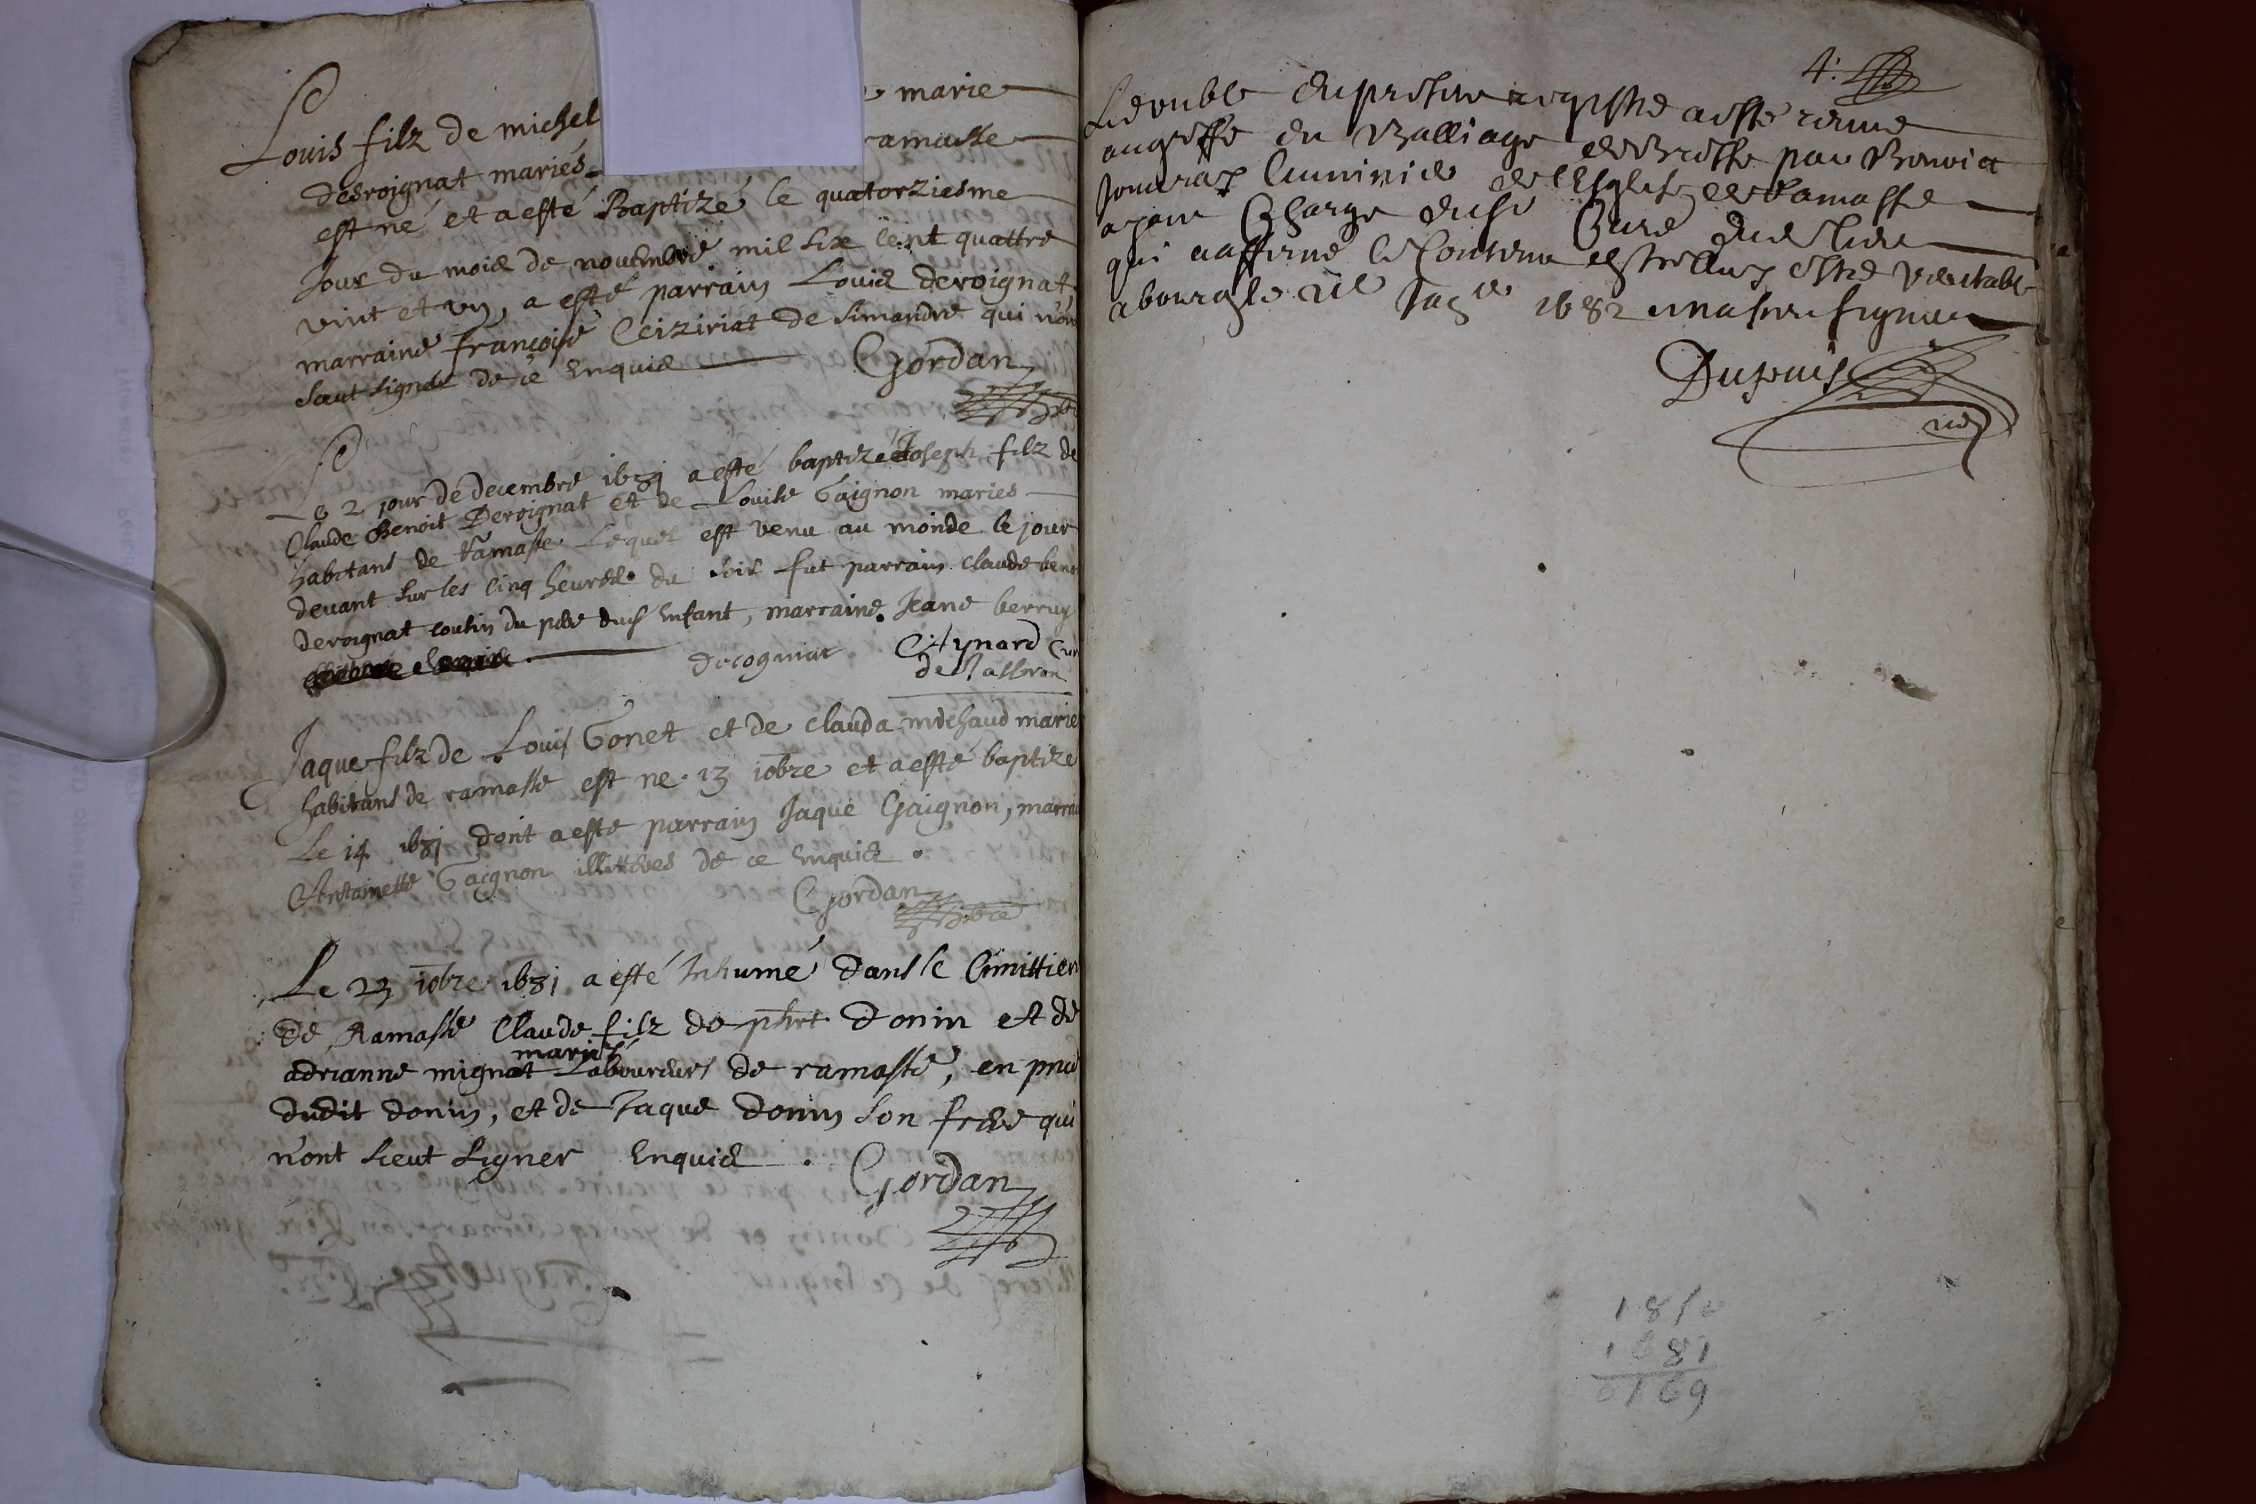 Louis filz de michel marie
desroignat mariés ramasse
est né et a esté Baptizé le quatorziesme
Jour du mois de novembre mil six cent quattre
vint et un, a esté parrain Louis deroignat
marraine françoise Ceiziriat de simandre qui n'on
sceut signer de ce enquis Gordan
Le 2 jour de decembre 1681 a esté baptizé Joseph filz de
Claude Benoit Deroignat et de Louise Gaignon maries
habitans de ramasse Lequel est venu au monde le jour
devant sur les cinq heures du soir fut parrain Claude ben
deroignat cousin du pere dud enfant, marraine Jeane
derogniat Aynard Cur
de
Jaque filz de Louis Gonet et de clauda michaud marie
habitans de ramasse est ne 13 10bre et a esté baptizé
Le 14 1681 dont a esté parrain Jaque Gaignon, marrai
Antoinette Gaignon illitteres de ce enquis.
Gordan
Le 23 10bre 1681 a esté Inhumé dans le Cimittier
de Ramasse Claude filz de phrt donin et de
mariés
adrianne mignot Laboureurs de ramasse, en pnce
dudit donin, et de Jaque donin son frere qui
n'ont sceut signer enquis.
Gordan
4.
Le double du presant registre a esté remis
au greffe du Balliage de Bresse par Benoict
de l'Esglise de Ramasse
ayant charge du sr Curé dud lieu
qui a affirmé le contenu estre veritable
a bourg le 1682 signé
Dupuis
1850
1681
0169